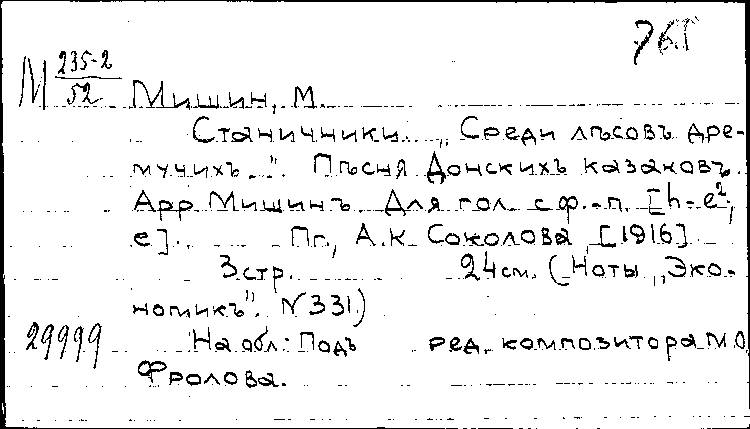 765
М 235-2
52
Мишин, М.
Станичники. „Среди лѣсовъ дре-
мучихъ..." Пѣсня Донскихъ казаковъ.
Арр Мишинъ. Для гол. с ф.-п. [h-e²,
e]. Пг., А.К Соколова, [1916]
3 стр. 24 см. (Ноты „Эко-
номикъ". N 331)
29999
На обл: Подъ ред. композитора М.О
Фролова.